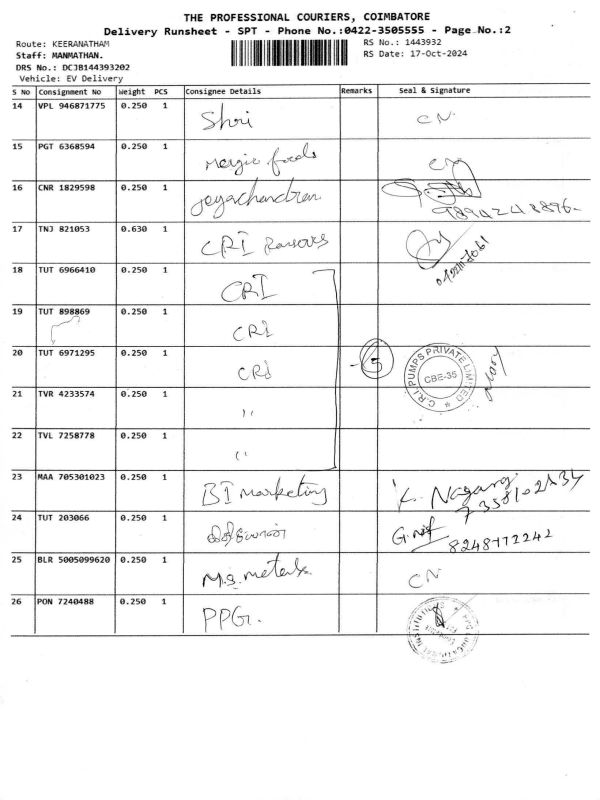 THE PROFESSIONAL COURIERS, COIMBATORE
Delivery Runsheet - SPT - Phone No.:0422-3505555 - Page No.:2
Route: KEERANATHAM
RS No.: 1443932
Staff: MANMATHAN.
RS Date: 17-Oct-2024
DRS No.: DCJB144393202
Vehicle: EV Delivery
S No Consignment No Weight PCS Consignee Details Remarks Seal & Signature
14 VPL 946871775 0.250 1 Shri CN
15 PGT 6368594 0.250 1 foods CN
16 CNR 1829598 0.250 1 Jeyachandran
17 TNJ 821053 0.630 1 CRI
18 TUT 6966410 0.250 1 CRI
19 TUT 898869 0.250 1 CRI
20 TUT 6971295 0.250 1 CRI 5 C.R.I. PUMPS PRIVATE LIMITED CBE-35
21 TVR 4233574 0.250 1 "
22 TVL 7258778 0.250 1 "
23 MAA 705301023 0.250 1 BI marketing
24 TUT 203066 0.250 1 8248772242
25 BLR 5005099620 0.250 1 M.s. metals CN
26 PON 7240488 0.250 1 PPG.